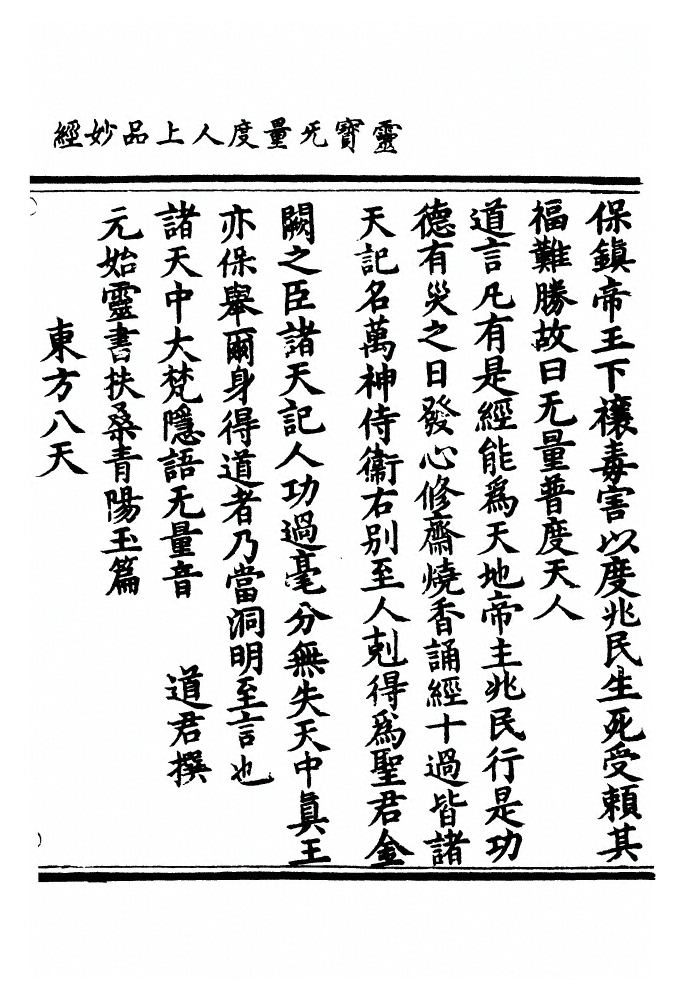 靈寳无量度人上品妙經
保鎮帝王下禳毒害以度兆民生死受賴其
福難勝故曰无量普度天人
道言凡有是經能爲天地帝主兆民行是功
德有災之日發心修齋燒香誦經十過皆諸
天記名萬神侍衞右别至人剋得爲聖君金
闕之臣諸天記人功過毫分無失天中眞王
亦保舉爾身得道者乃當洞明至言也
諸天中大梵隱語无量音　道君撰
元始靈書扶桑青陽玉篇
東方八天